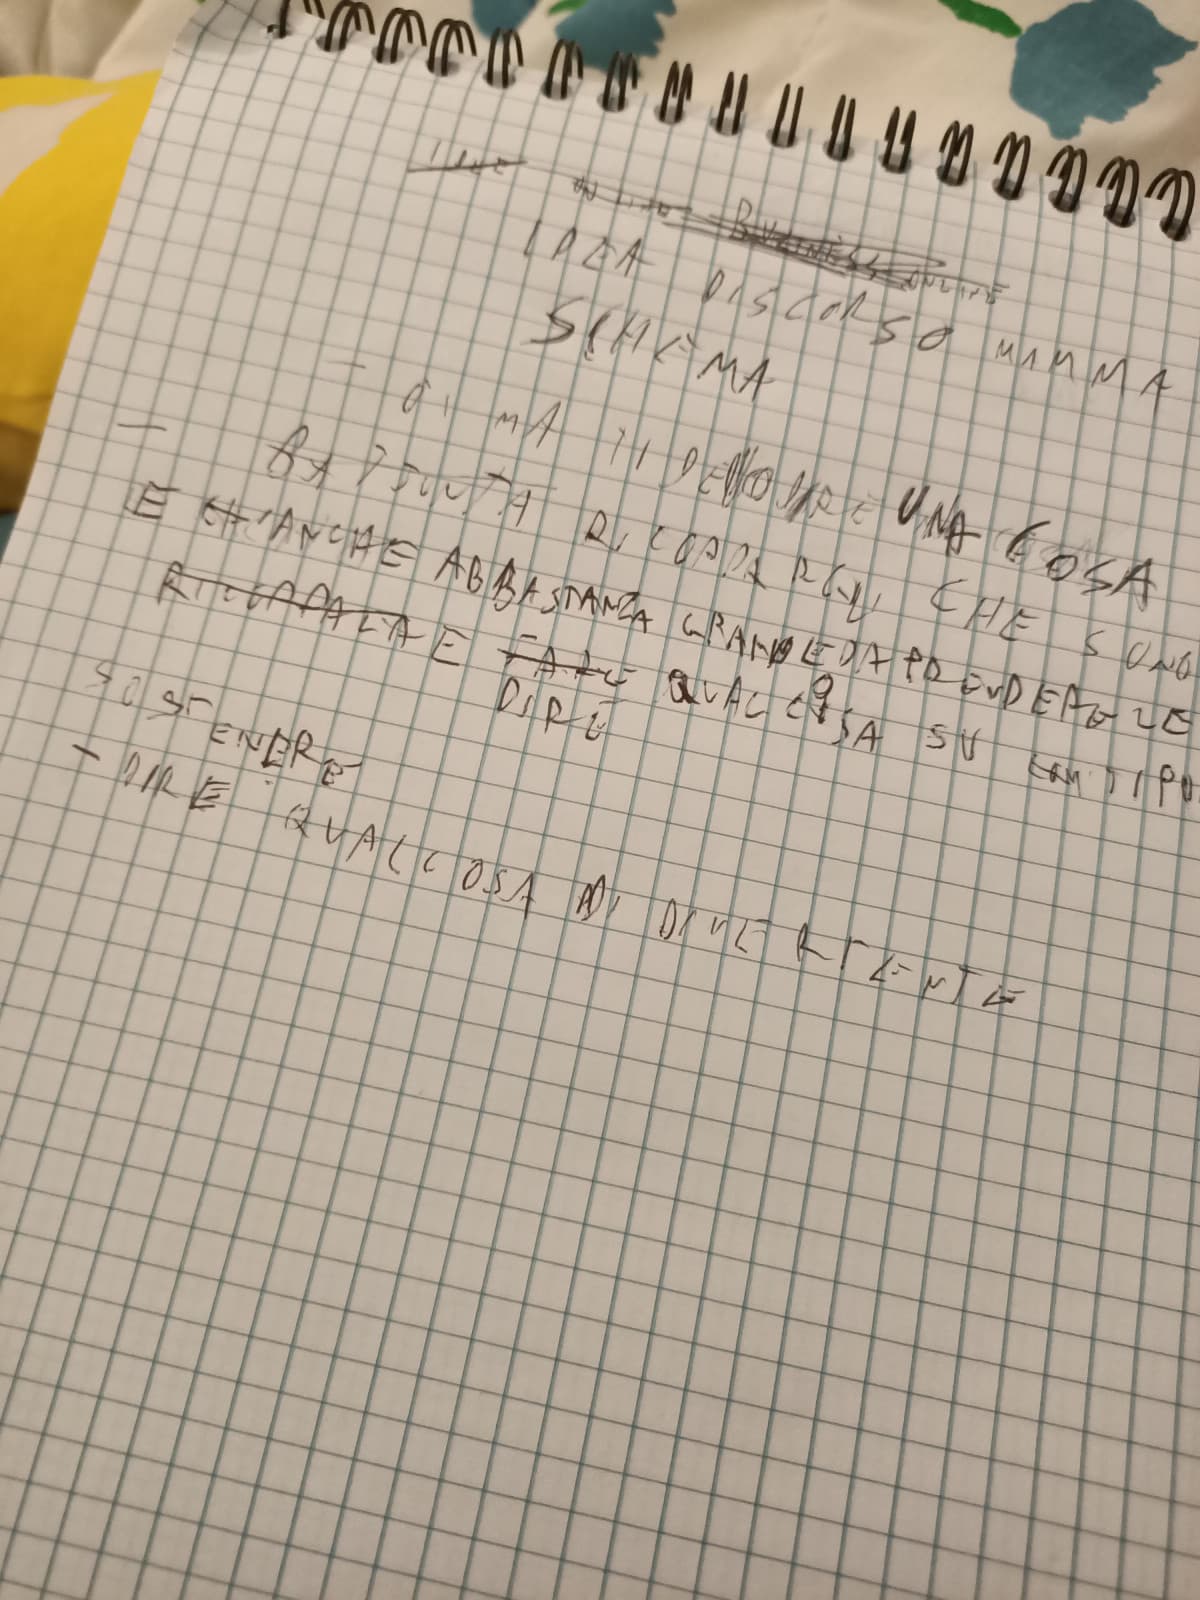 BUSINESS ONLINE
IDEA DISCORSO MAMMA
SCHEMA
- OI MA TI DEVO DIRE UNA COSA
- BATTUTA CHE SONO
E ANCHE ABBASTANZA GRANDE DA PRENDERE LE
E FARE QUALCOSA SU TIPO
DIRE
SOSTENERE
- DIRE QUALCOSA DI DIVERTENTE